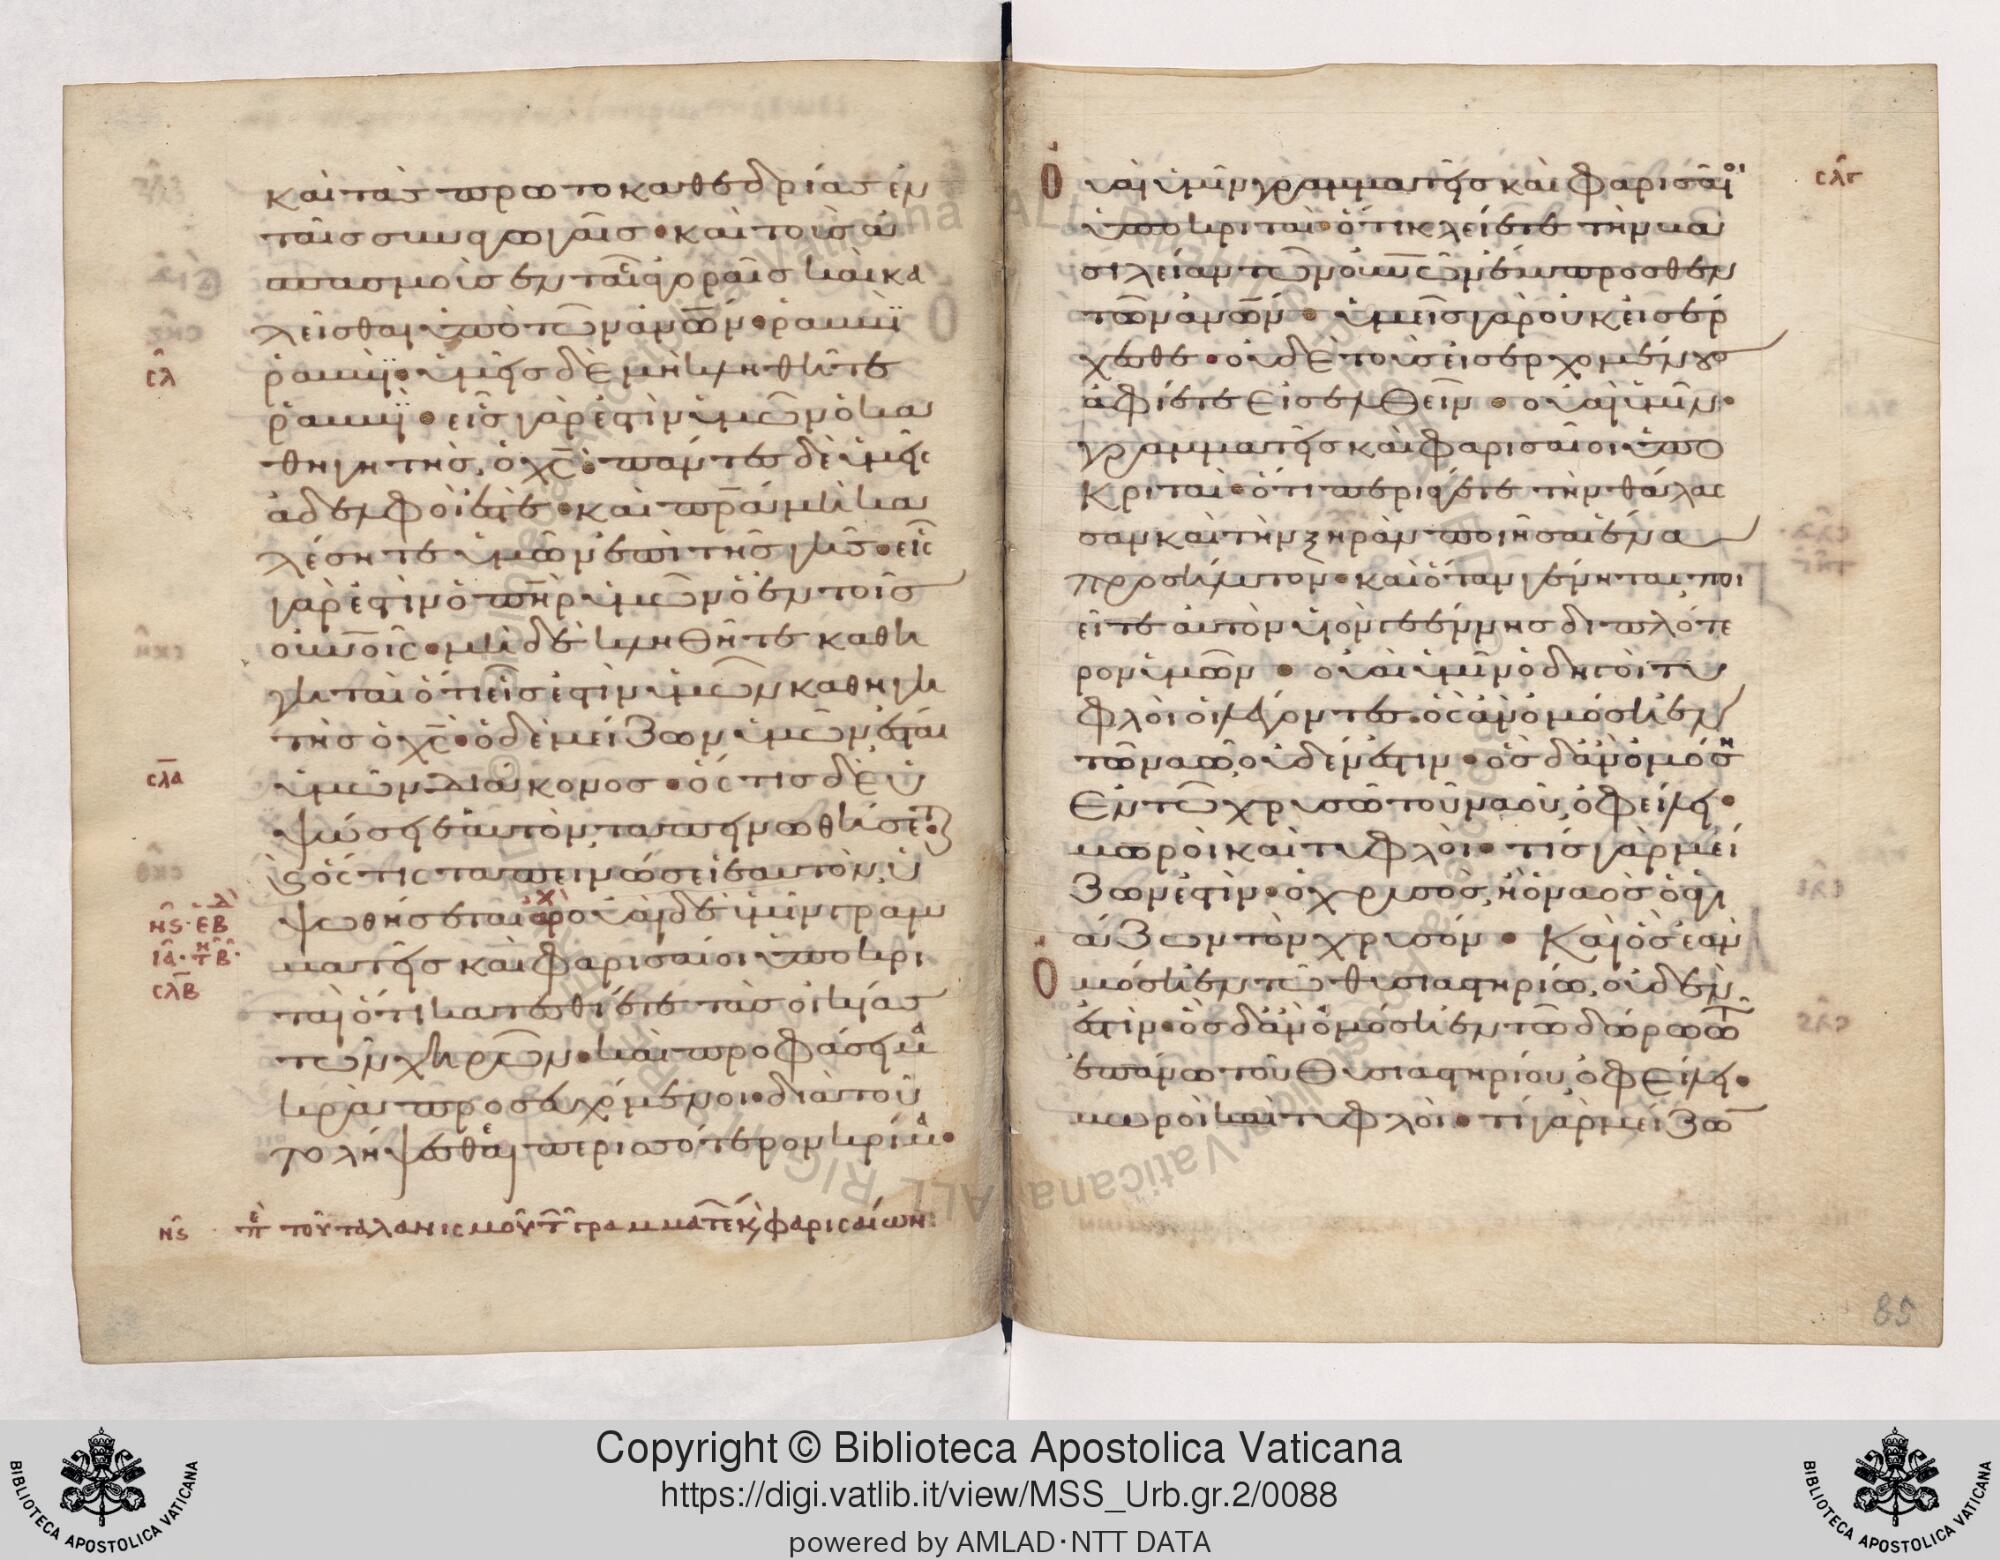 καὶ τὰς πρωτοκαθεδρίας ἐν
ταῖς συναγωγαῖς· καὶ τοὺς ἀ
σπασμοὺς ἐν ταῖς ἀγοραῖς καὶ κα
λεῖσθαι ὑπὸ τῶν ἀνῶν· ῥαββὶ
ῥαββί· ὑμεῖς δὲ μὴ κληθῆτε
ῥαββί· εἷς γάρ ἐστιν ὑμῶν ὁ κα
θηγητής, ὁ χς· πάντες δὲ ὑμεῖς
ἀδελφοί ἐστε· καὶ πρα μὴ κα
λέσητε ὑμῶν ἐπὶ τῆς γῆς· εἷς
γάρ ἐστιν ὁ πηρ ὑμῶν ὁ ἐν τοῖς
οὐνοῖς· μηδὲ κληθῆτε καθη
γηταί ὅτι εἷς ἐστιν ὑμῶν καθηγη
τὴς ὁ χς· ὁ δὲ μείζων ὑμῶν ἔσται
ὑμῶν διάκονος· ὅστις δὲ ὑ
ψώσει ἑαυτὸν, ταπεινωθήσεται·
καὶ ὅστις ταπεινώσει ἑαυτὸν, ὑ
ψωθήσεται· οὐαὶ δὲ ὑμῖν γραμ
ματεῖς καὶ Φαρισαῖοι ὑποκρι
ταὶ ὅτι κατεσθίετε τὰς οἰκίας
τῶν χηρῶν· καὶ προφάσει μα
κρὰ προσευχόμενοι· διὰ τοῦ
το λήψεσθαι περισσότερον κρίμα·
σλ
σλα
σλβ
νς πε τοῦ ταλανισμοῦ τ γραμματέ κ, φαρισαίων:
Οὐαὶ ὑμῖν γραμματεῖς καὶ Φαρισαῖοι
ὑποκριταί· ὅτι κλείετε τὴν βα
σιλείαν τῶν οὐνῶν ἔμπροσθεν
τῶν ἀνῶν· ὑμεῖς γὰρ οὐκ εἰσέρ
χεσθε· οὐδὲ τοὺς εἰσερχομένους
ἀφίετε εἰσελθεῖν· οὐαὶ ὑμῖν·
γραμματεῖς καὶ Φαρισαῖοι ὑπο
κριταί· ὅτι περιάγετε τὴν θάλασ
σαν καὶ τὴν ξηρὰν ποιῆσαι ἕνα
προσήλυτον· καὶ ὅταν γένηται, ποι
εῖτε αὐτὸν υἱὸν γεέννης διπλότε
ρον ὑμῶν· οὐαὶ ὑμῖν ὁδηγοὶ τυ
φλοὶ οἱ λέγοντες· ὃς ἂν ὀμόσῃ ἐν
τῶ ναῶ, οὐδέν ἐστιν· ὃς δ' ἂν ὀμόσῃ
ἐν τῶ χρυσῶ τοῦ ναοῦ, ὀφείλει·
μωροὶ καὶ τυφλοί· τίς γὰρ μεί
ζων ἐστίν· ὁ χρυσός, ἢ ὁ ναὸς ὁ ἁγι
άζων τὸν χρυσόν· Καὶ ὃς ἐὰν
ὀμόσῃ ἐν τῶ θυσιαστηρίω, οὐδέν
ἐστιν· ὃς δ' ἂν ὀμόσῃ ἐν τῶ δώρω τῶ
ἐπάνω τοῦ θυσιαστηρίου, ὀφείλει·
μωροὶ καὶ τυφλοί· τί γὰρ μείζον
σλγ
85
Copyright © Biblioteca Apostolica Vaticana
https://digi.vatlib.it/view/MSS_Urb.gr.2/0088
powered by AMLAD·NTT DATA
BIBLIOTECA APOSTOLICA VATICANA
BIBLIOTECA APOSTOLICA VATICANA